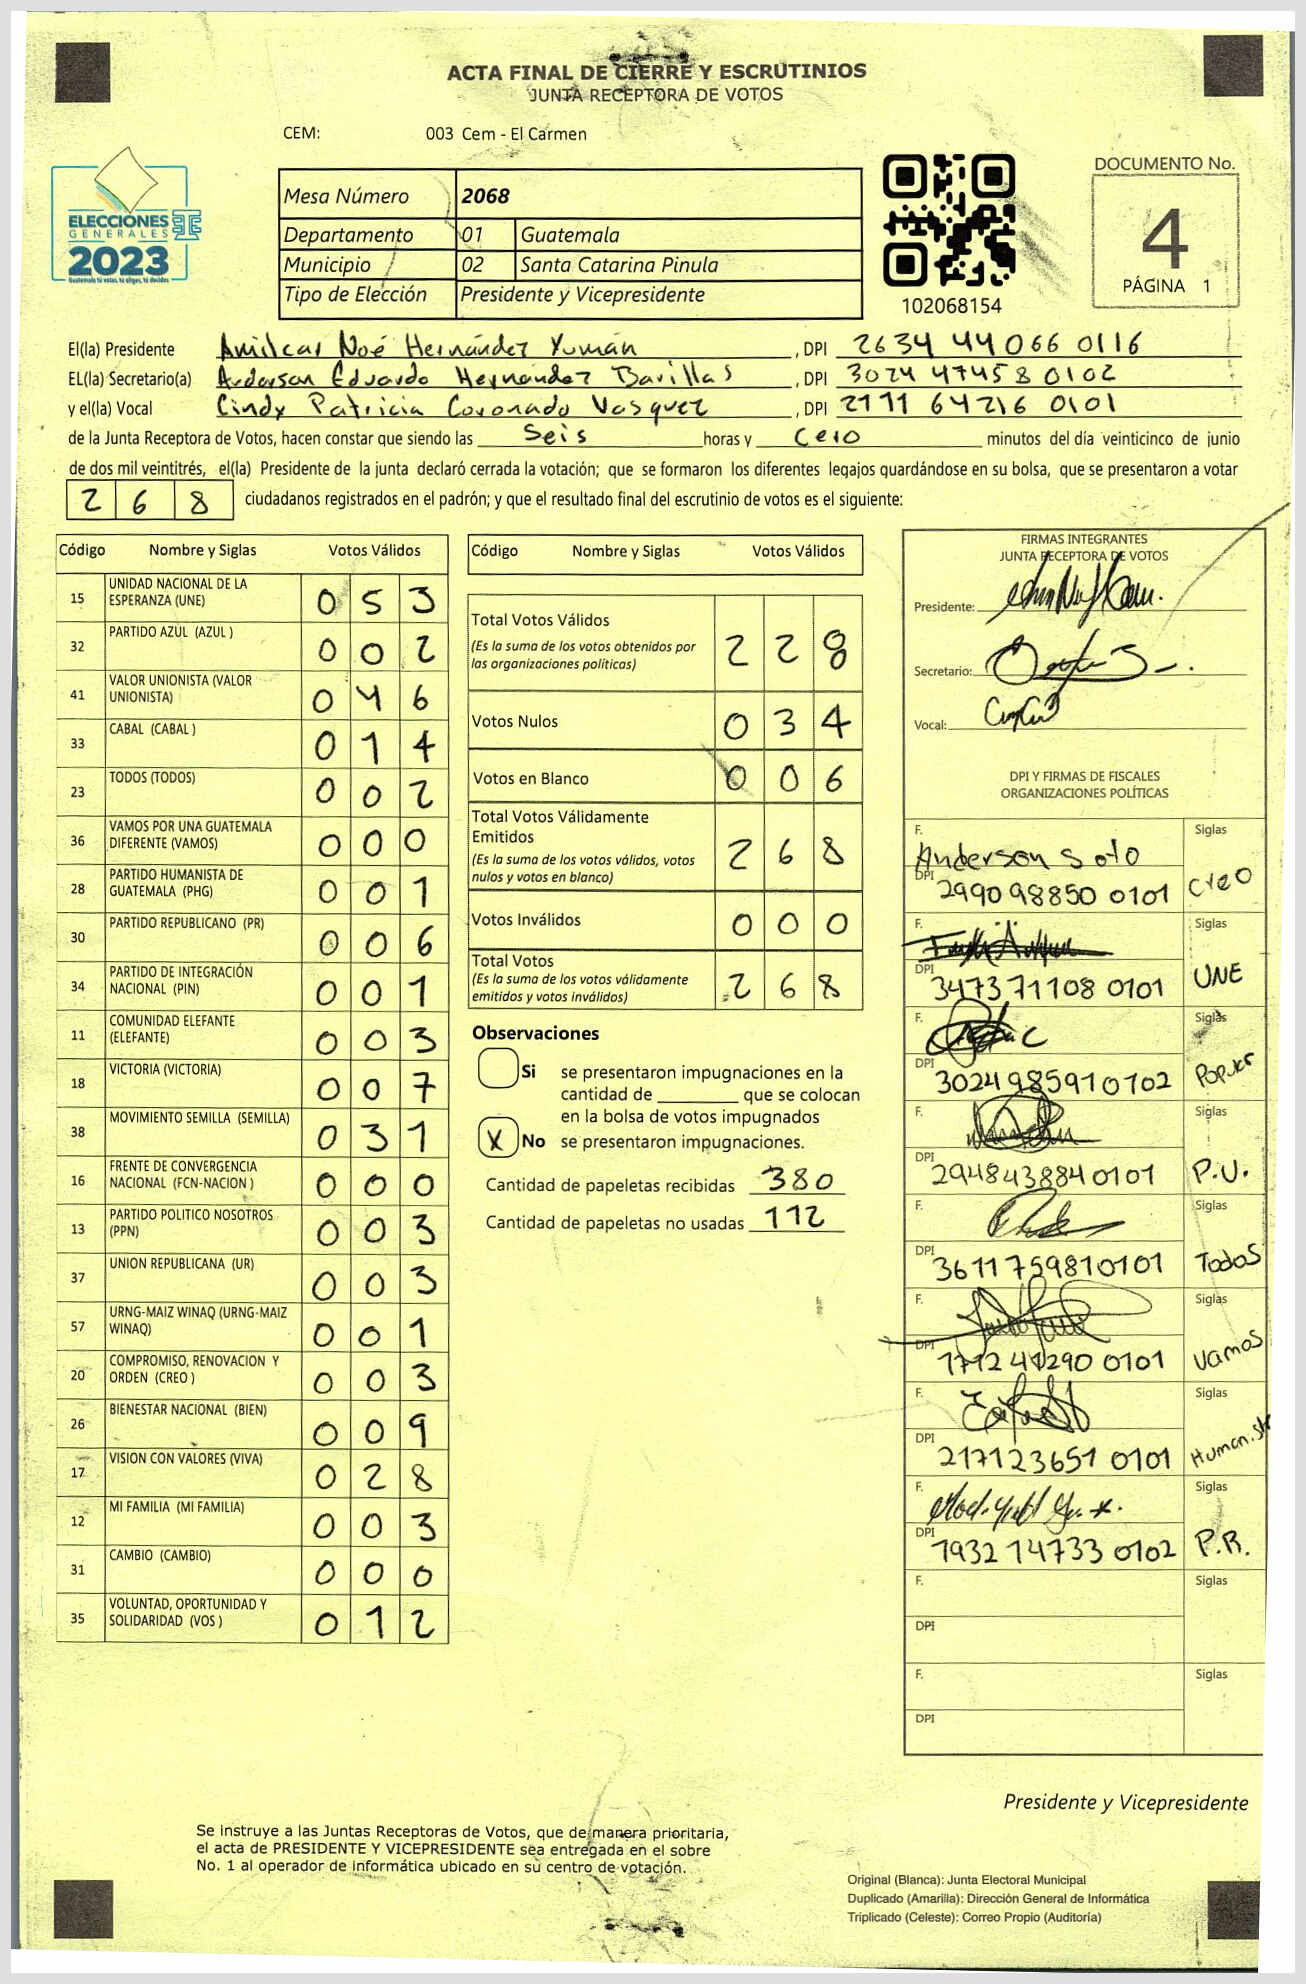 ACTA FINAL DE CIERRE Y ESCRUTINIOS
JUNTA RECEPTORA DE VOTOS
CEM: 003 Cem - El Carmen
ELECCIONES
GENERALES
2023
Guatemala tú votas, tú eliges, tú decides
Mesa Número 2068
Departamento 01 Guatemala
Municipio 02 Santa Catarina Pinula
Tipo de Elección Presidente y Vicepresidente
102068154
DOCUMENTO No.
4
PÁGINA 1
El(la) Presidente Amilcar Noé Hernández Yumán , DPI 2634 44066 0116
EL(la) Secretario(a) Anderson Eduardo Hernández Barillas , DPI 3024 47458 0102
y el(la) Vocal Cindy Patricia Coronado Vasquez , DPI 2111 64216 0101
de la Junta Receptora de Votos, hacen constar que siendo las Seis horas y Cero minutos del día veinticinco de junio
de dos mil veintitrés, el(la) Presidente de la junta declaró cerrada la votación; que se formaron los diferentes legajos quardándose en su bolsa, que se presentaron a votar
2 6 8 ciudadanos registrados en el padrón; y que el resultado final del escrutinio de votos es el siguiente:
Código Nombre y Siglas Votos Válidos
15 UNIDAD NACIONAL DE LA ESPERANZA (UNE) 0 5 3
32 PARTIDO AZUL (AZUL ) 0 0 2
41 VALOR UNIONISTA (VALOR UNIONISTA) 0 4 6
33 CABAL (CABAL ) 0 1 4
23 TODOS (TODOS) 0 0 2
36 VAMOS POR UNA GUATEMALA DIFERENTE (VAMOS) 0 0 0
28 PARTIDO HUMANISTA DE GUATEMALA (PHG) 0 0 1
30 PARTIDO REPUBLICANO (PR) 0 0 6
34 PARTIDO DE INTEGRACIÓN NACIONAL (PIN) 0 0 1
11 COMUNIDAD ELEFANTE (ELEFANTE) 0 0 3
18 VICTORIA (VICTORIA) 0 0 7
38 MOVIMIENTO SEMILLA (SEMILLA) 0 3 1
16 FRENTE DE CONVERGENCIA NACIONAL (FCN-NACION ) 0 0 0
13 PARTIDO POLITICO NOSOTROS (PPN) 0 0 3
37 UNION REPUBLICANA (UR) 0 0 3
57 URNG-MAIZ WINAQ (URNG-MAIZ WINAQ) 0 0 1
20 COMPROMISO, RENOVACION Y ORDEN (CREO ) 0 0 3
26 BIENESTAR NACIONAL (BIEN) 0 0 9
17 VISION CON VALORES (VIVA) 0 2 8
12 MI FAMILIA (MI FAMILIA) 0 0 3
31 CAMBIO (CAMBIO) 0 0 0
35 VOLUNTAD, OPORTUNIDAD Y SOLIDARIDAD (VOS ) 0 1 2
Código Nombre y Siglas Votos Válidos
Total Votos Válidos 2 2 8
(Es la suma de los votos obtenidos por
las organizaciones políticas)
Votos Nulos 0 3 4
Votos en Blanco 0 0 6
Total Votos Válidamente
Emitidos 2 6 8
(Es la suma de los votos válidos, votos
nulos y votos en blanco)
Votos Inválidos 0 0 0
Total Votos 2 6 8
(Es la suma de los votos válidamente
emitidos y votos inválidos)
Observaciones
Si se presentaron impugnaciones en la
cantidad de ________ que se colocan
en la bolsa de votos impugnados
X No se presentaron impugnaciones.
Cantidad de papeletas recibidas 380
Cantidad de papeletas no usadas 112
FIRMAS INTEGRANTES
JUNTA RECEPTORA DE VOTOS
Presidente:
Secretario:
Vocal:
DPI Y FIRMAS DE FISCALES
ORGANIZACIONES POLÍTICAS
F. Anderson Soto Siglas
DPI 2990 98850 0101 Creo
F. Siglas
DPI 3473 71108 0101 UNE
F. Siglas
DPI 3024985910102
F. Siglas
DPI 2948438840101 P.U.
F. Siglas
DPI 3611759810101 Todos
F. Siglas
DPI 1712 41290 0101 Vamos
F. Siglas
DPI 217123651 0101
F. Siglas
DPI 1932 14733 0102 P.R.
F. Siglas
DPI
F. Siglas
DPI
Presidente y Vicepresidente
Se instruye a las Juntas Receptoras de Votos, que de manera prioritaria,
el acta de PRESIDENTE Y VICEPRESIDENTE sea entregada en el sobre
No. 1 al operador de informática ubicado en su centro de votación.
Original (Blanca): Junta Electoral Municipal
Duplicado (Amarilla): Dirección General de Informática
Triplicado (Celeste): Correo Propio (Auditoría)